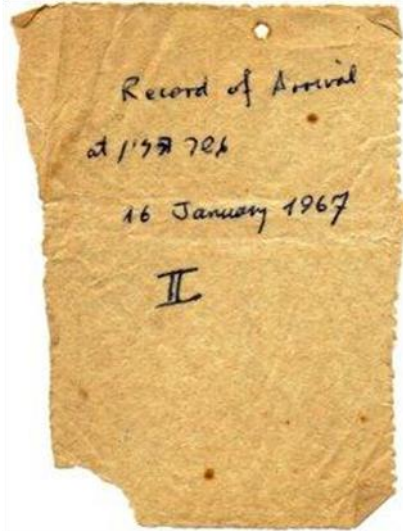 Record of Arrival
at
16 January 1967
II